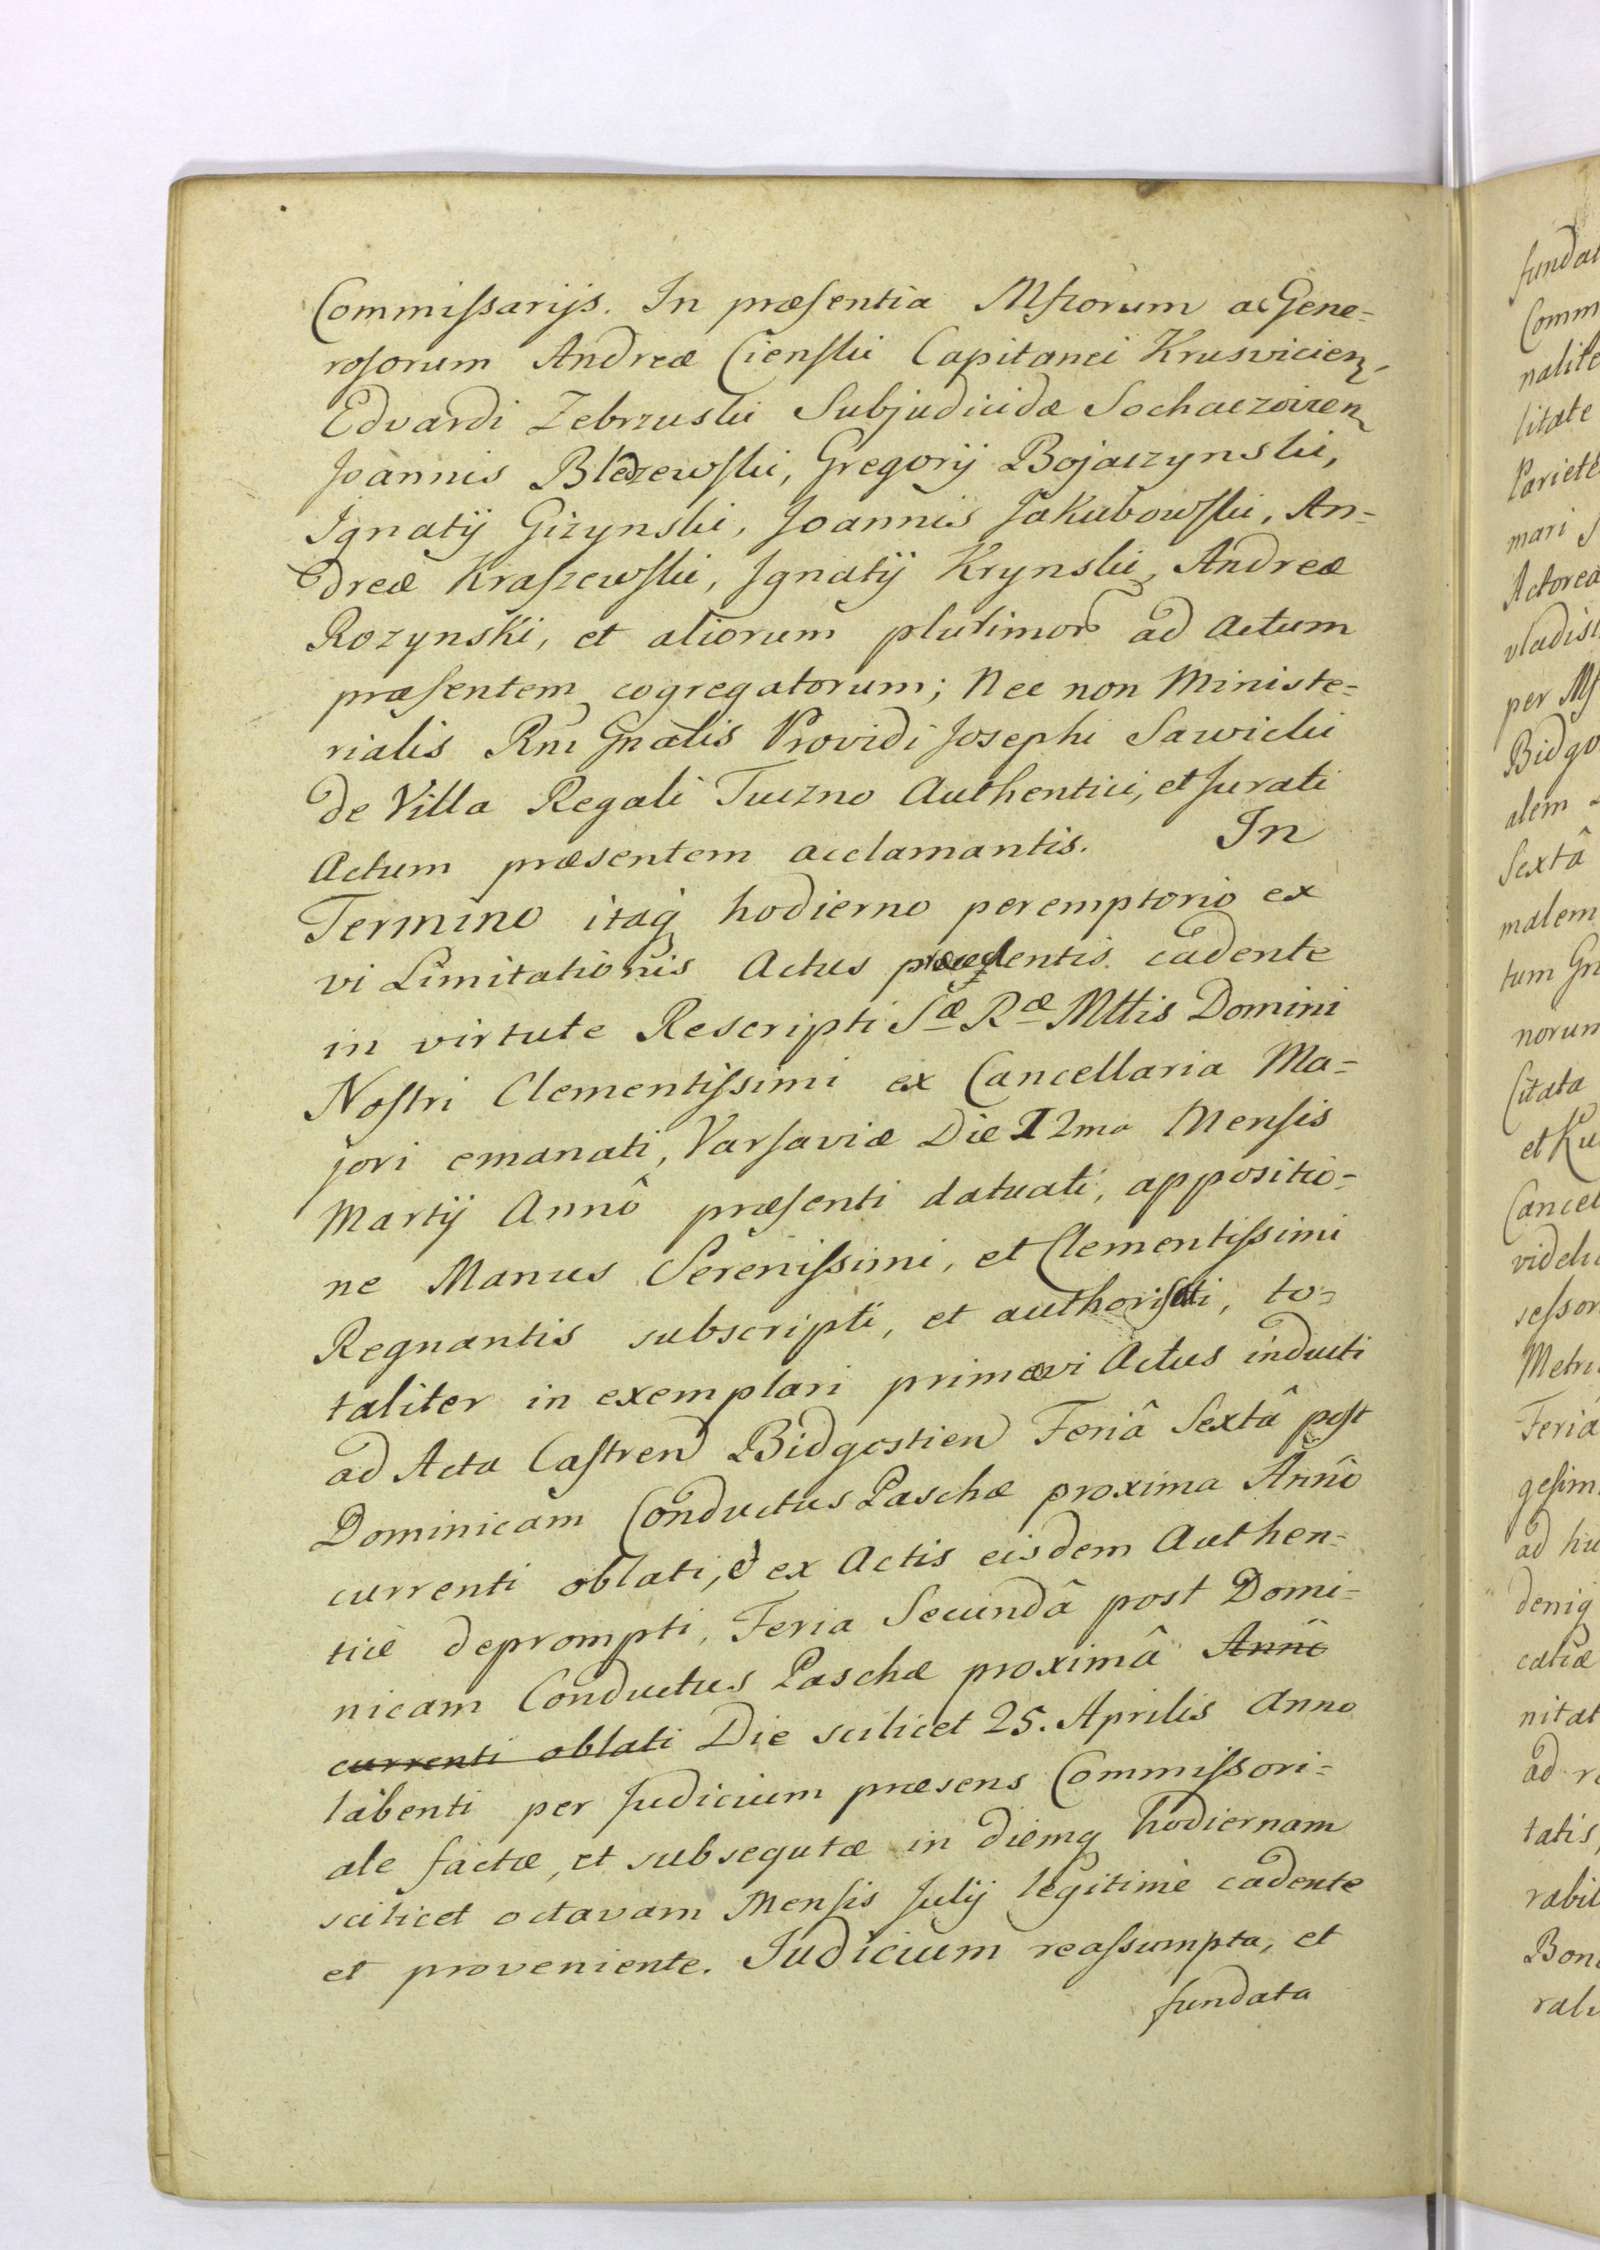 Commissarijs. In præsentia Mfrorum ac Gene=
rosorum Andreæ Cienski Capitanei Krusvicien,
Edvardi Zebrzuski Subjudicidæ Sochaczovien
Joannis Bledzewski, Gregorij Bojaczynski,
Ignatij Gizynski, Joannis Jakubowski, An=
dreæ Kraszewski, Ignatij Krynski, Andreæ
Rozynski, et aliorum plurimor ad Actum
præsentem cogregatorum; Nec non Ministe=
rialis Rni Gnalis Providi Josephi Sawicki
de Villa Regali Tuczno Authentici, et Jurati
Actum præsentem acclamantis. In
Termino itaq hodierno peremptorio ex
vi Limitationis Actus præcedentis cadente
in virtute Rescripti Sæ Ræ Mttis Domini
Nostri Clementissimi ex Cancellaria Ma=
jori emanati, Varsaviæ Die 12ma Mensis
Martij Annô præsenti datuati, appositio=
ne Manus Serenissimi, et Clementissimi
Regnantis subscripti, et authorisati, to=
taliter in exemplari primævi Actus inducti
ad Acta Castren Bidgostien Feriâ Sextâ post
Dominicam Conductus Paschæ proxima Annô
currenti oblati, & ex Actis eisdem Authen=
ticè deprompti, Feria Secundâ post Domi=
nicam Conductus Paschæ proximâ Annô
currenti oblati Die scilicet 25. Aprilis Anno
labenti per Judicium præsens Commissori=
ale factæ, et subsequtæ in diemq hodiernam
scilicet octavam Mensis Julij legitimè cadente
et proveniente. Judicium reassumpta, et
fundata
Comm
nalite
litate
Pariete
mari
Actorea
per
Bidgo
alem
Sextâ
malem
tum Gn
norum
Citata
et Ku
Cancel
sessor
Metri
Feriâ
gesim
ad hu
deniq
catiæ
nitat
ad re
tatis,
rabil
Bon